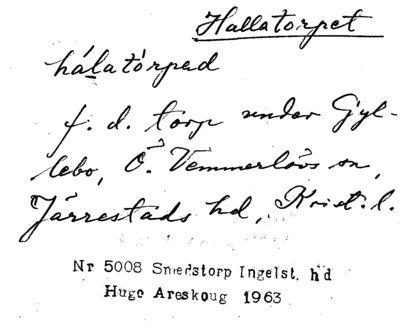 Hallatorpet
hálatòrped
f. d. torp under Gyl-
lebo, Ö. Vemmerlövs sn,
Järrestads hd, Krist. l.
Nr 5008 Smedstorp Ingelst. hd
Hugo Areskoug 1963